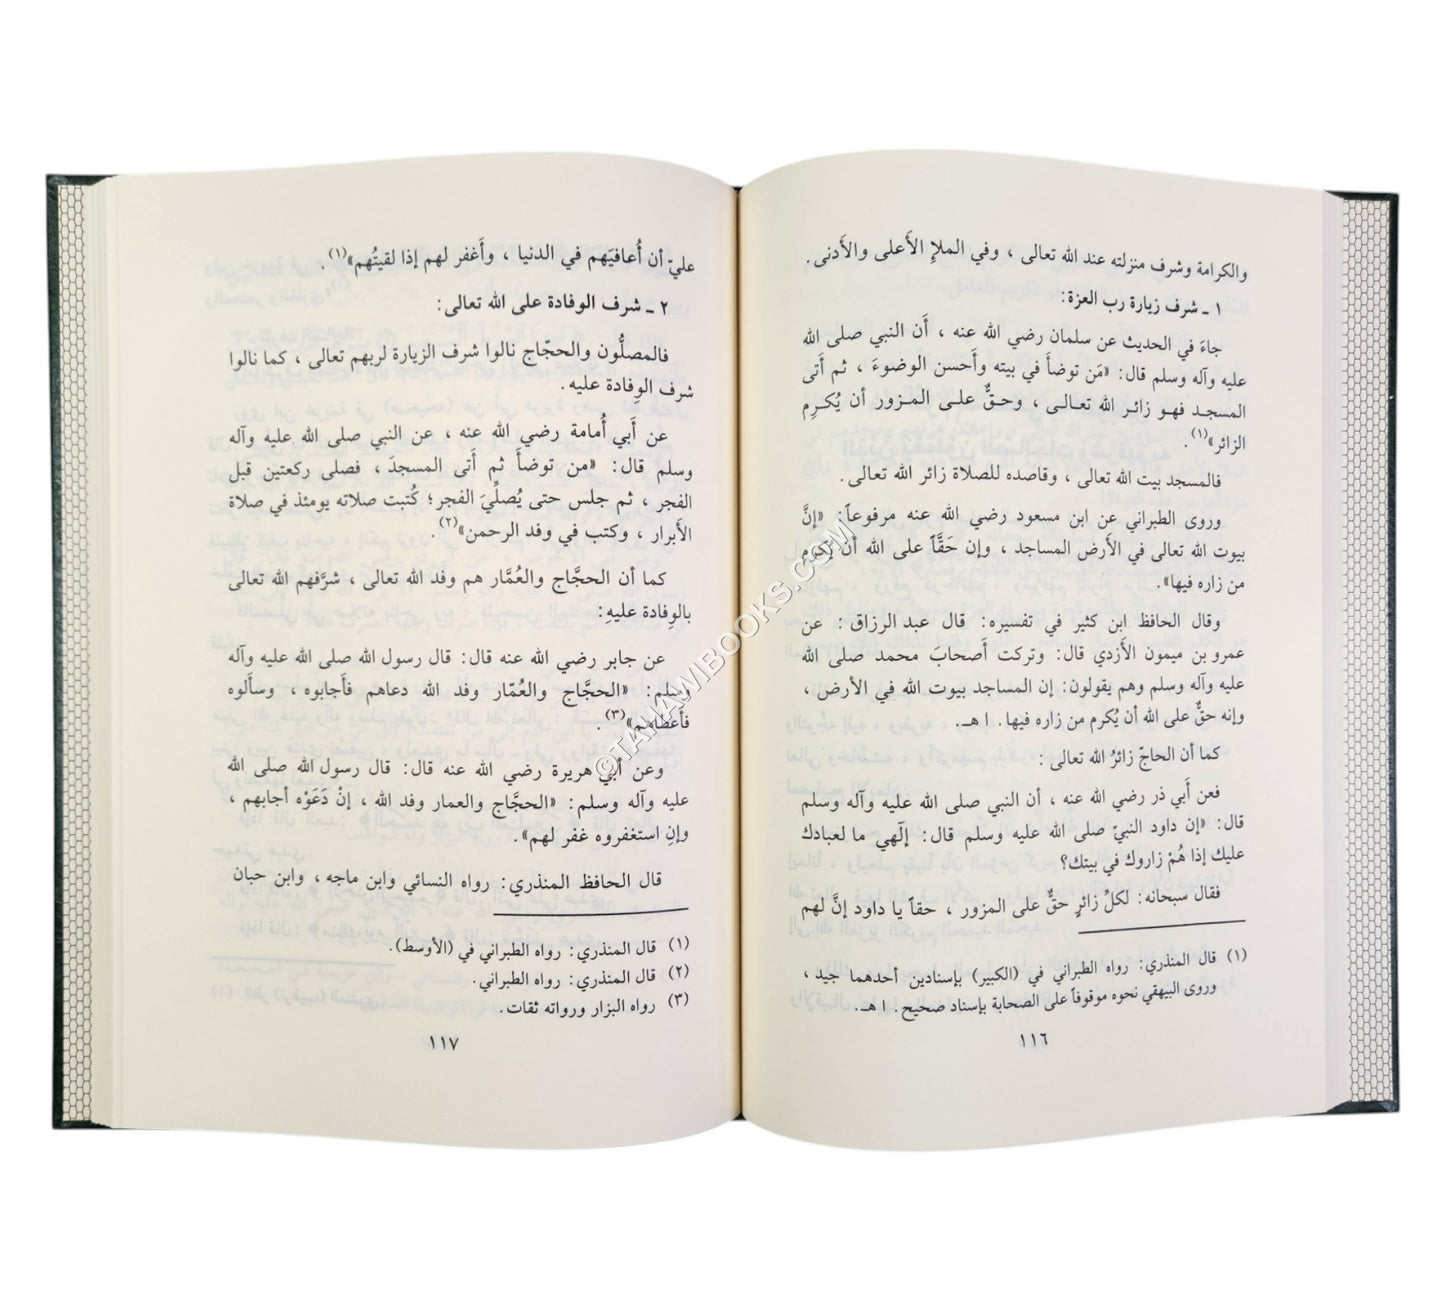 والكرامة وشرف منزلته عند الله تعالى ، وفي الملإ الأَعلى والأَدنى .
١ ـ شرف زيارة رب العزة:
جاءَ في الحديث عن سلمان رضي الله عنه ، أَن النبي صلى الله
عليه وآله وسلم قال: «مَن توضأَ في بيته وأَحسن الوضوءَ ، ثم أَتى
المسجد فهو زائر الله تعالى ، وحقٌّ على المزور أن يُكرِم
الزائر»(١) .
فالمسجد بيت الله تعالى ، وقاصده للصلاة زائر الله تعالى .
وروى الطبراني عن ابن مسعود رضي الله عنه مرفوعاً: «إنَّ
بيوت الله تعالى في الأَرض المساجد ، وإن حَقّاً على الله أن يُكرم
من زاره فيها».
وقال الحافظ ابن كثير في تفسيره: قال عبد الرزاق : عن
عمرو بن ميمون الأَزدي قال: وتركت أَصحابَ محمد صلى الله
عليه وآله وسلم وهم يقولون: إن المساجد بيوت الله في الأرض ،
وإنه حقٌّ على الله أن يُكرم من زاره فيها. ا هـ.
كما أن الحاجّ زائرُ الله تعالى :
فعن أَبي ذر رضي الله عنه ، أن النبي صلى الله عليه وآله وسلم
قال: «إن داود النبيّ صلى الله عليه وسلم قال: إلٓهي ما لعبادك
عليك إذا هُمْ زاروك في بيتك؟
فقال سبحانه: لكلِّ زائرٍ حقٌّ على المزور ، حقاً يا داود إنَّ لهم
(١) قال المنذري: رواه الطبراني في (الكبير) بإسنادين أحدهما جيد ،
وروى البيهقي نحوه موقوفاً على الصحابة بإسناد صحيح . ا هـ.
١١٦
عليّ أن أُعافيَهم في الدنيا ، وأَغفر لهم إذا لقيتُهم»(١) .
٢ ـ شرف الوفادة على الله تعالى:
فالمصلُّون والحجّاج نالوا شرف الزيارة لربهم تعالى ، كما نالوا
شرف الوِفادة عليه.
عن أَبي أُمامة رضي الله عنه ، عن النبي صلى الله عليه وآله
وسلم قال: «من توضأَ ثم أَتى المسجدَ ، فصلى ركعتين قبل
الفجر ، ثم جلس حتى يُصلِّيَ الفجر؛ كُتبت صلاته يومئذ في صلاة
الأَبرار ، وكتب في وفد الرحمن»(٢).
كما أن الحجَّاج والعُمَّار هم وفد الله تعالى ، شرَّفهم الله تعالى
بالوِفادة عليهِ:
عن جابر رضي الله عنه قال: قال رسول الله صلى الله عليه وآله
وسلم: «الحجَّاج والعُمّار وفد الله دعاهم فأَجابوه ، وسأَلوه
فأَعطاهم»(٣) .
وعن أَبي هريرة رضي الله عنه قال: قال رسول الله صلى الله
عليه وآله وسلم: «الحجَّاج والعمار وفد الله ، إنْ دَعَوْه أجابهم ،
وإنِ استغفروه غفر لهم».
قال الحافظ المنذري: رواه النسائي وابن ماجه ، وابن حبان
(١) قال المنذري: رواه الطبراني في (الأوسط).
(٢) قال المنذري: رواه الطبراني.
(٣) رواه البزار ورواته ثقات .
١١٧
©TAHAWIBOOKS.COM